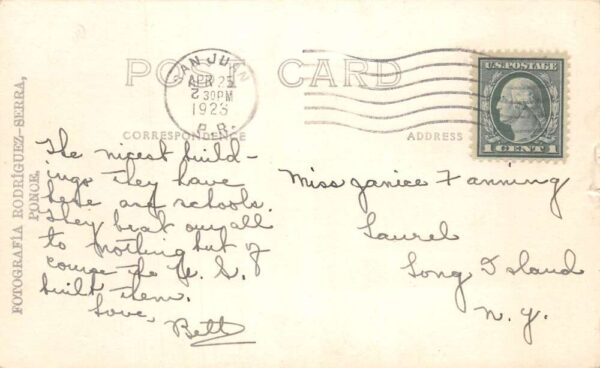 POST CARD
SAN JUAN
APR 25
2 30PM
1923
P.R.
U.S. POSTAGE
1 CENT 1
CORRESPONDENCE
ADDRESS
FOTOGRAFÍA RODRÍGUEZ-SERRA,
PONCE.
The nicest build-
ings they have
here are schools.
They beat our all
to nothing but of
course the U. S.
built them.
Love,
Bett
Miss Janice Fanning
Laurel
Long Island
N.Y.